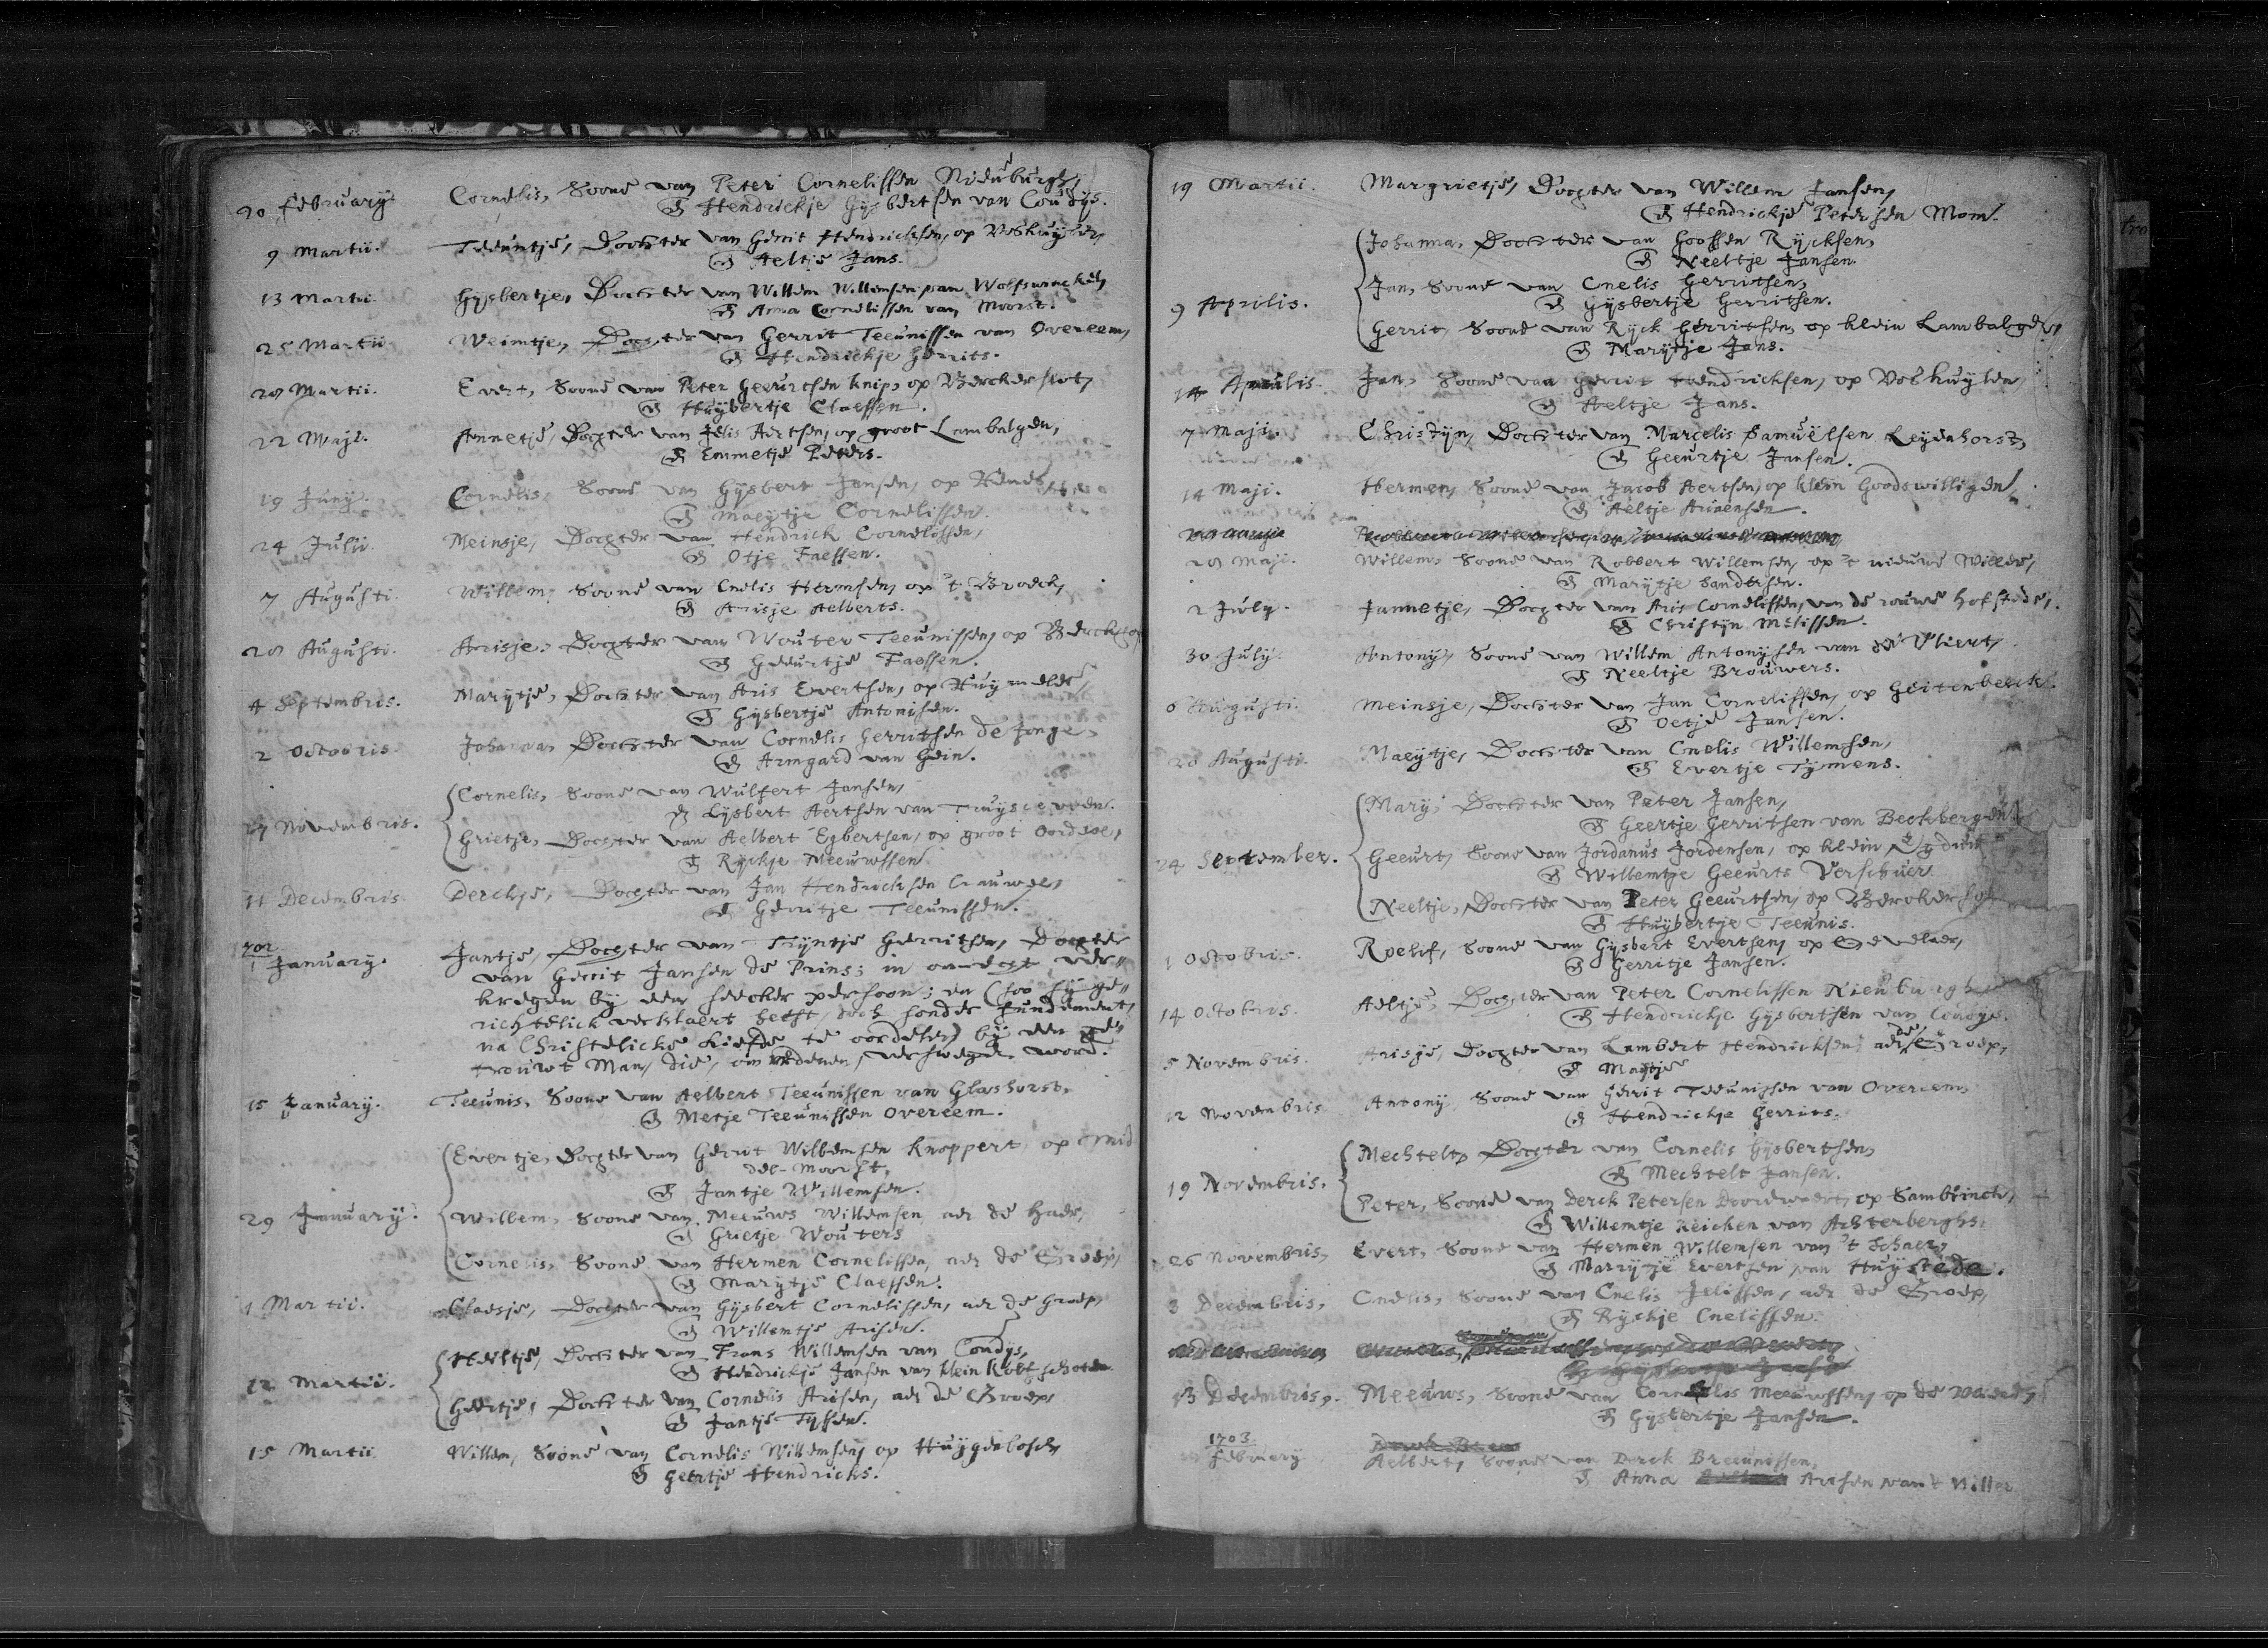 20 february Cornelis, Soone van Peter Cornelissen Nieuburgh,
En Hendrickje Gysbertsen van Coudys.
9 Martii. Teeuntje, Dochter van Gerrit Hendricksen, op Voskuylen,
En Aeltje Jans.
13 Martii Gysbertje, Dochter van Willem Willemsen van Wolfswinckel,
En Anna Cornelissen van Moorst.
25 Martii Weimtje, Dochter van Gerrit Teeunissen van Overeem,
En Hendrickje Gerrits.
28 Martii. Evert, Soone van Peter Geeurtsen knip, op Bercker slot,
En Huybertje Claessen.
22 Maji. Annetje, Dochter van Jelis Aertsen, op groot Lambalgen,
En Emmetje Peters.
19 Juny. Cornelis, Soone van Gysbert Jansen, op
En Maeytje Cornelissen.
24 Julii Meinsje, Dochter van Hendrick Cornelissen,
En Otje Faessen.
7 Augusti. Willem, Soone van Cnelis Hermsen, op 't Broeck,
En Arisje Aelberts.
20 Augusti. Arisje, Dochter van Wouter Teeunissen, op
En Geeurtje Faessen.
4 Septembris. Marytje, Dochter van Aris Evertsen, op
En Gysbertje Antonisen.
2 Octobris. Johanna, Dochter van Cornelis Gerritsen de Jonge,
En Armgard van Gein.
Cornelis, Soone van Wulfert Jansen,
En Lysbert Aertsen van
27 Novembris. Grietje, Dochter van Aelbert Egbertsen, op groot
En Ryckje Meeuwssen.
11 Decembris. Derckje, Dochter van Jan Hendricksen Crauwel,
En Gerritje Teeunissen.
1702
1 January. Jantje, Dochter van Tryntje Gerritsen, Dochter
van Gerrit Jansen de Prins; in on-echt ver-
kregen by een seecker persoon; en (soo sy ge-
richtelick verklaert heeft, doch sonder fundament,
na Christelicke Liefde te oordelen) by een ge-
trouwt Man, die, om redenen, verswegen word.
15 January. Teeunis, Soone van Aelbert Teeunissen van Glashorst,
En Metje Teeunissen Overeem.
Evertje, Dochter van Gerrit Willemsen Knoppert op Mid
del-Moorst,
En Jantje Willemsen.
29 January. Willem, Soone van Meeuws Willemsen, aen de
En Grietje Wouters
Cornelis, Soone van Hermen Cornelissen, aen de Groep,
En Marytje Claessen.
1 Martii. Claesje, Dochter van Gysbert Cornelissen, aen de Groep,
En Willemtje Arisen.
Heiltje, Dochter van Frans Willemsen van Coudys,
En Hendrickje Jansen van klein Kolfschoten
12 Martii. Geertje, Dochter van Cornelis Arisen, aen de Groep,
En Jantje Tyssen.
15 Martii Willem, Soone van Cornelis Willemsen, op Huygenbosch,
En Geertje Hendricks.
19 Martii. Margrietje, Dochter van Willem Jansen,
En Hendrickje Petersen Mom.
Johanna, Dochter van Goossen Rycksen,
En Neeltje Jansen.
Jan, Soone van Cnelis Gerritsen,
9 Aprilis. En Gysbertje Gerritsen.
Gerrit, Soone van Ryck Gerritsen, op klein Lambalgen,
En Marytje Jans.
14 Aprilis. Jan, Soone van Gerrit Hendricksen, op Voskuylen,
En Aeltje Jans.
7 Maji. Christyn, Dochter van Marcelis Samuelsen Leyenhorst,
En Geeurtje Jansen.
14 Maji. Hermen, Soone van Jacob Aertsen, op klein Goodswilligen
En Aeltje Ariaensen.
28 Maji. Willem, Soone van Robbert Willemsen, op 't nieuwe Willer,
En Marytje Sandersen.
2 July. Jannetje, Dochter van Aris Cornelissen, van de rouwe hofstede,
En Christyn Melissen.
30 July. Antony, Soone van Willem Antonysen van de Vliert,
En Neeltje Brouwers.
6 Augusti. Meinsje, Dochter van Jan Cornelissen, op Geitenbeeck,
En Oetje Jansen.
20 Augusti. Maeytje, Dochter van Cnelis Willemsen,
En Evertje Tymens.
Mary, Dochter van Peter Jansen,
En Geertje Gerritsen van Beckbergen
24 September. Geeurt, Soone van Jordanus Jordensen, op klein
En Willemtje Geeurts Verschuer
Neeltje, Dochter van Peter Geeurtsen, op Bercker
En Huybertje Teeunis.
1 Octobris. Roelof, Soone van Gysbert Evertsen, op
En Gerritje Jansen.
14 Octobris. Aeltje, Dochter van Peter Cornelissen Nienburgh
En Hendrickje Gysbertsen van Coudys.
5 Novembris. Arisje, Dochter van Lambert Hendricksen, aen de Groep,
En Maytje
12 Novembris Antony Soone van Gerrit Teeunissen van Overeem,
En Hendrickje Gerrits.
Mechtelt, Dochter van Cornelis Gysbertsen,
En Mechtelt Jansen.
19 Novembris. Peter, Soone van Derck Petersen Doordewaert, op Sambrinck,
En Willemtje Reicken van Achterberghs.
26 Novembris, Evert, Soone van Hermen Willemsen van 't Schaer,
En Marrytje Evertsen van Huystede.
3 Decembris, Cnelis, Soone van Cnelis Jelissen, aen de Groep,
En Ryckje Cnelissen.
13 Decembris, Meeuws, Soone van Cornelis Meeuwssen, op de
En Gysbertje Jansen.
1703
February Aelbert, Soone van Derck Breeunissen,
En Anna Arisen van 't Willer